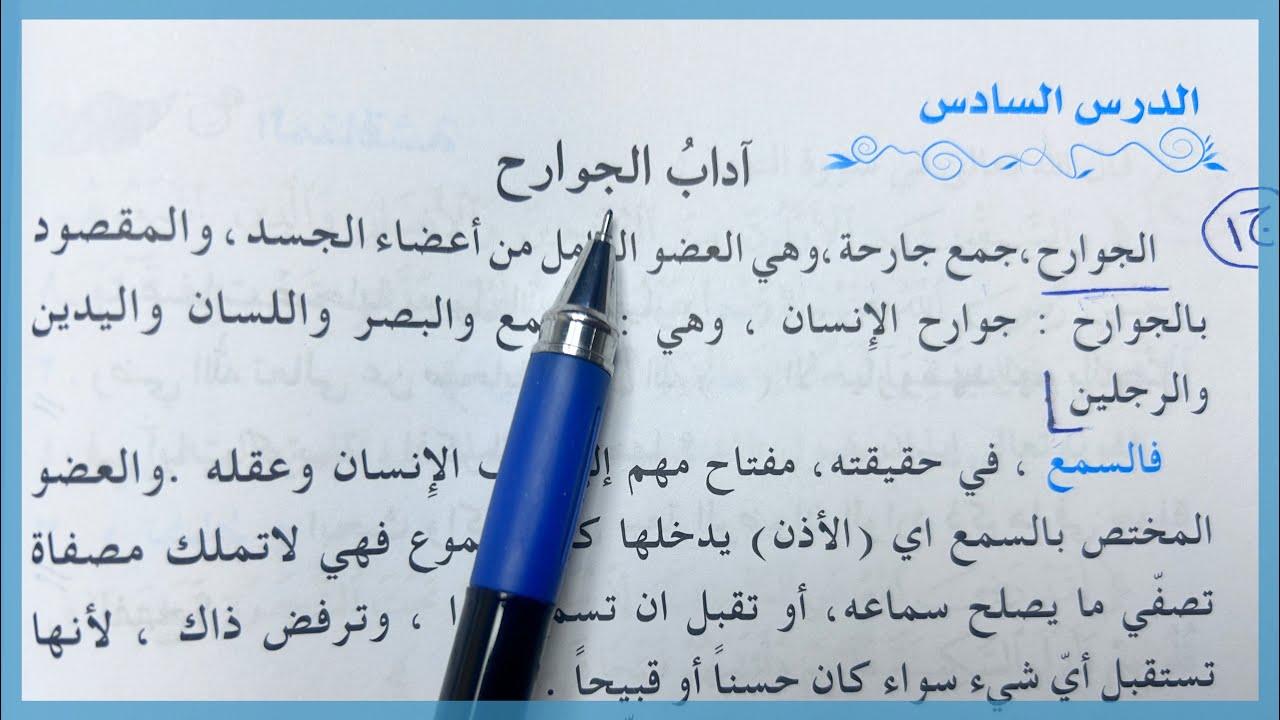 الدرس السادس
آدابُ الجوارح
ج١
الجوارح، جمع جارحة، وهي العضو من أعضاء الجسد، والمقصود
بالجوارح : جوارح الإنسان ، وهي : والبصر واللسان واليدين
والرجلين
فالسمع ، في حقيقته، مفتاح مهم الإنسان وعقله .والعضو
المختص بالسمع اي (الأذن) يدخلها فهي لاتملك مصفاة
تصفّي ما يصلح سماعه، أو تقبل ان ، وترفض ذاك ، لأنها
تستقبل أيّ شيء سواء كان حسناً أو قبيحاً .